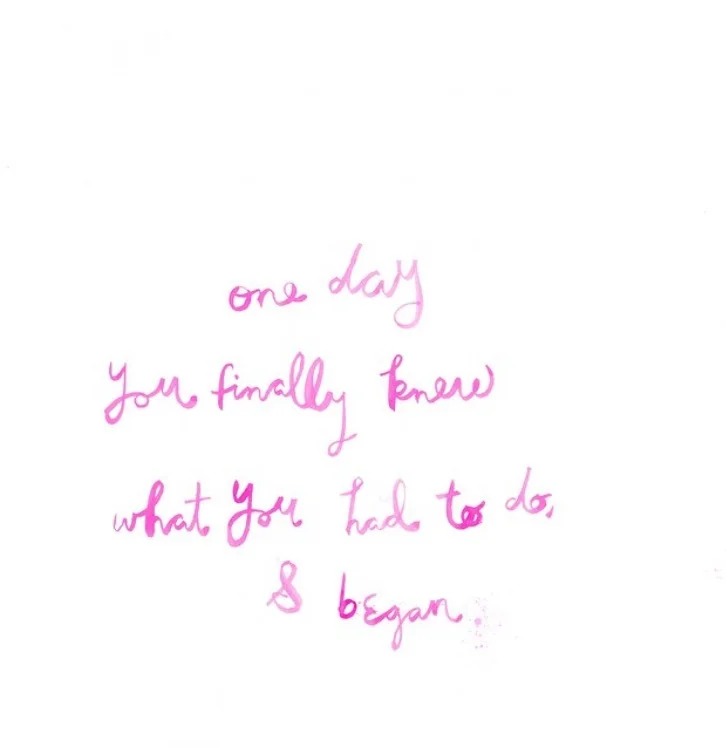 one day
you finally knew
what you had to do,
& began.